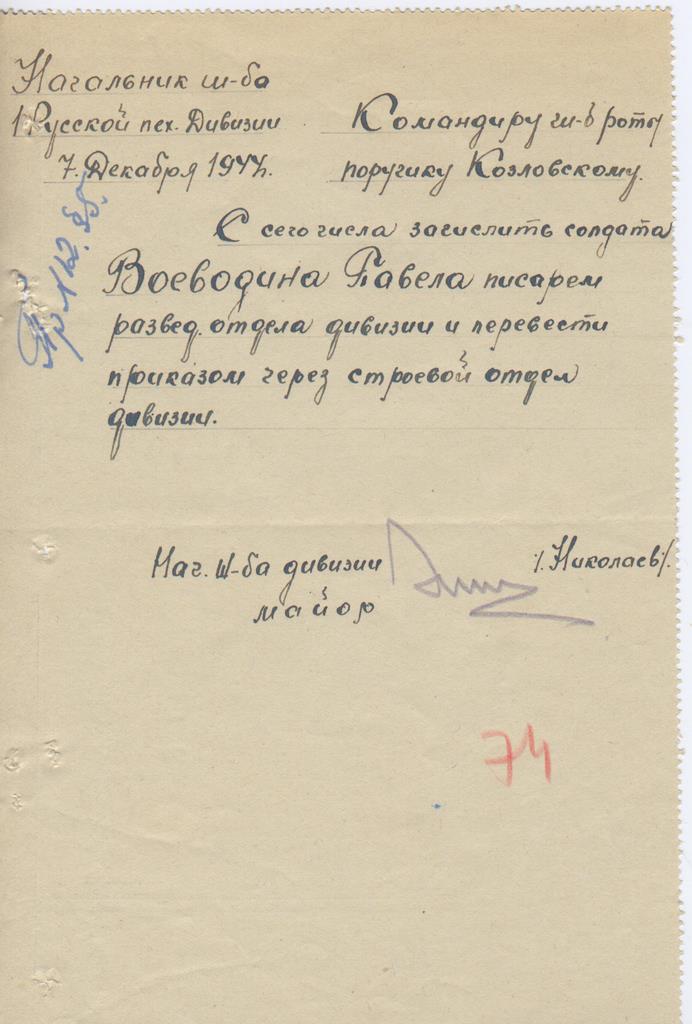 Начальник ш-ба
1 Русской пех. Дивизии
7. Декабря 1944 г.
Командиру ш-б роты
поручику Козловскому.
С сего числа зачислить солдата
Воеводина Павела писарем
развед. отдела дивизии и перевести
приказом через строевой отдел
дивизии.
Нач. Ш-ба дивизии
майор
/. Николаев /.
74